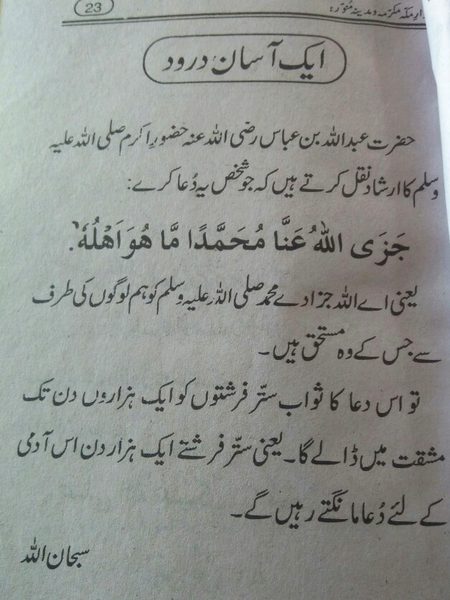 23
مکہ مکرمہ و مدینہ منورہ:
ایک آسان درود
حضرت عبداللہ بن عباس رضی اللہ عنہ حضورِ اکرم صلی اللہ علیہ
وسلم کا ارشاد نقل کرتے ہیں کہ جو شخص یہ دُعا کرے:
جَزَی اللّٰهُ عَنَّا مُحَمَّدًا مَّا هُوَ اَهْلُهٗ.
یعنی اے اللہ جزا دے محمد صلی اللہ علیہ وسلم کو ہم لوگوں کی طرف
سے جس کے وہ مستحق ہیں۔
تو اس دعا کا ثواب ستّر فرشتوں کو ایک ہزاروں دن تک
مشقت میں ڈالے گا۔ یعنی ستّر فرشتے ایک ہزار دن اس آدمی
کے لئے دُعا مانگتے رہیں گے۔
سبحان اللہ